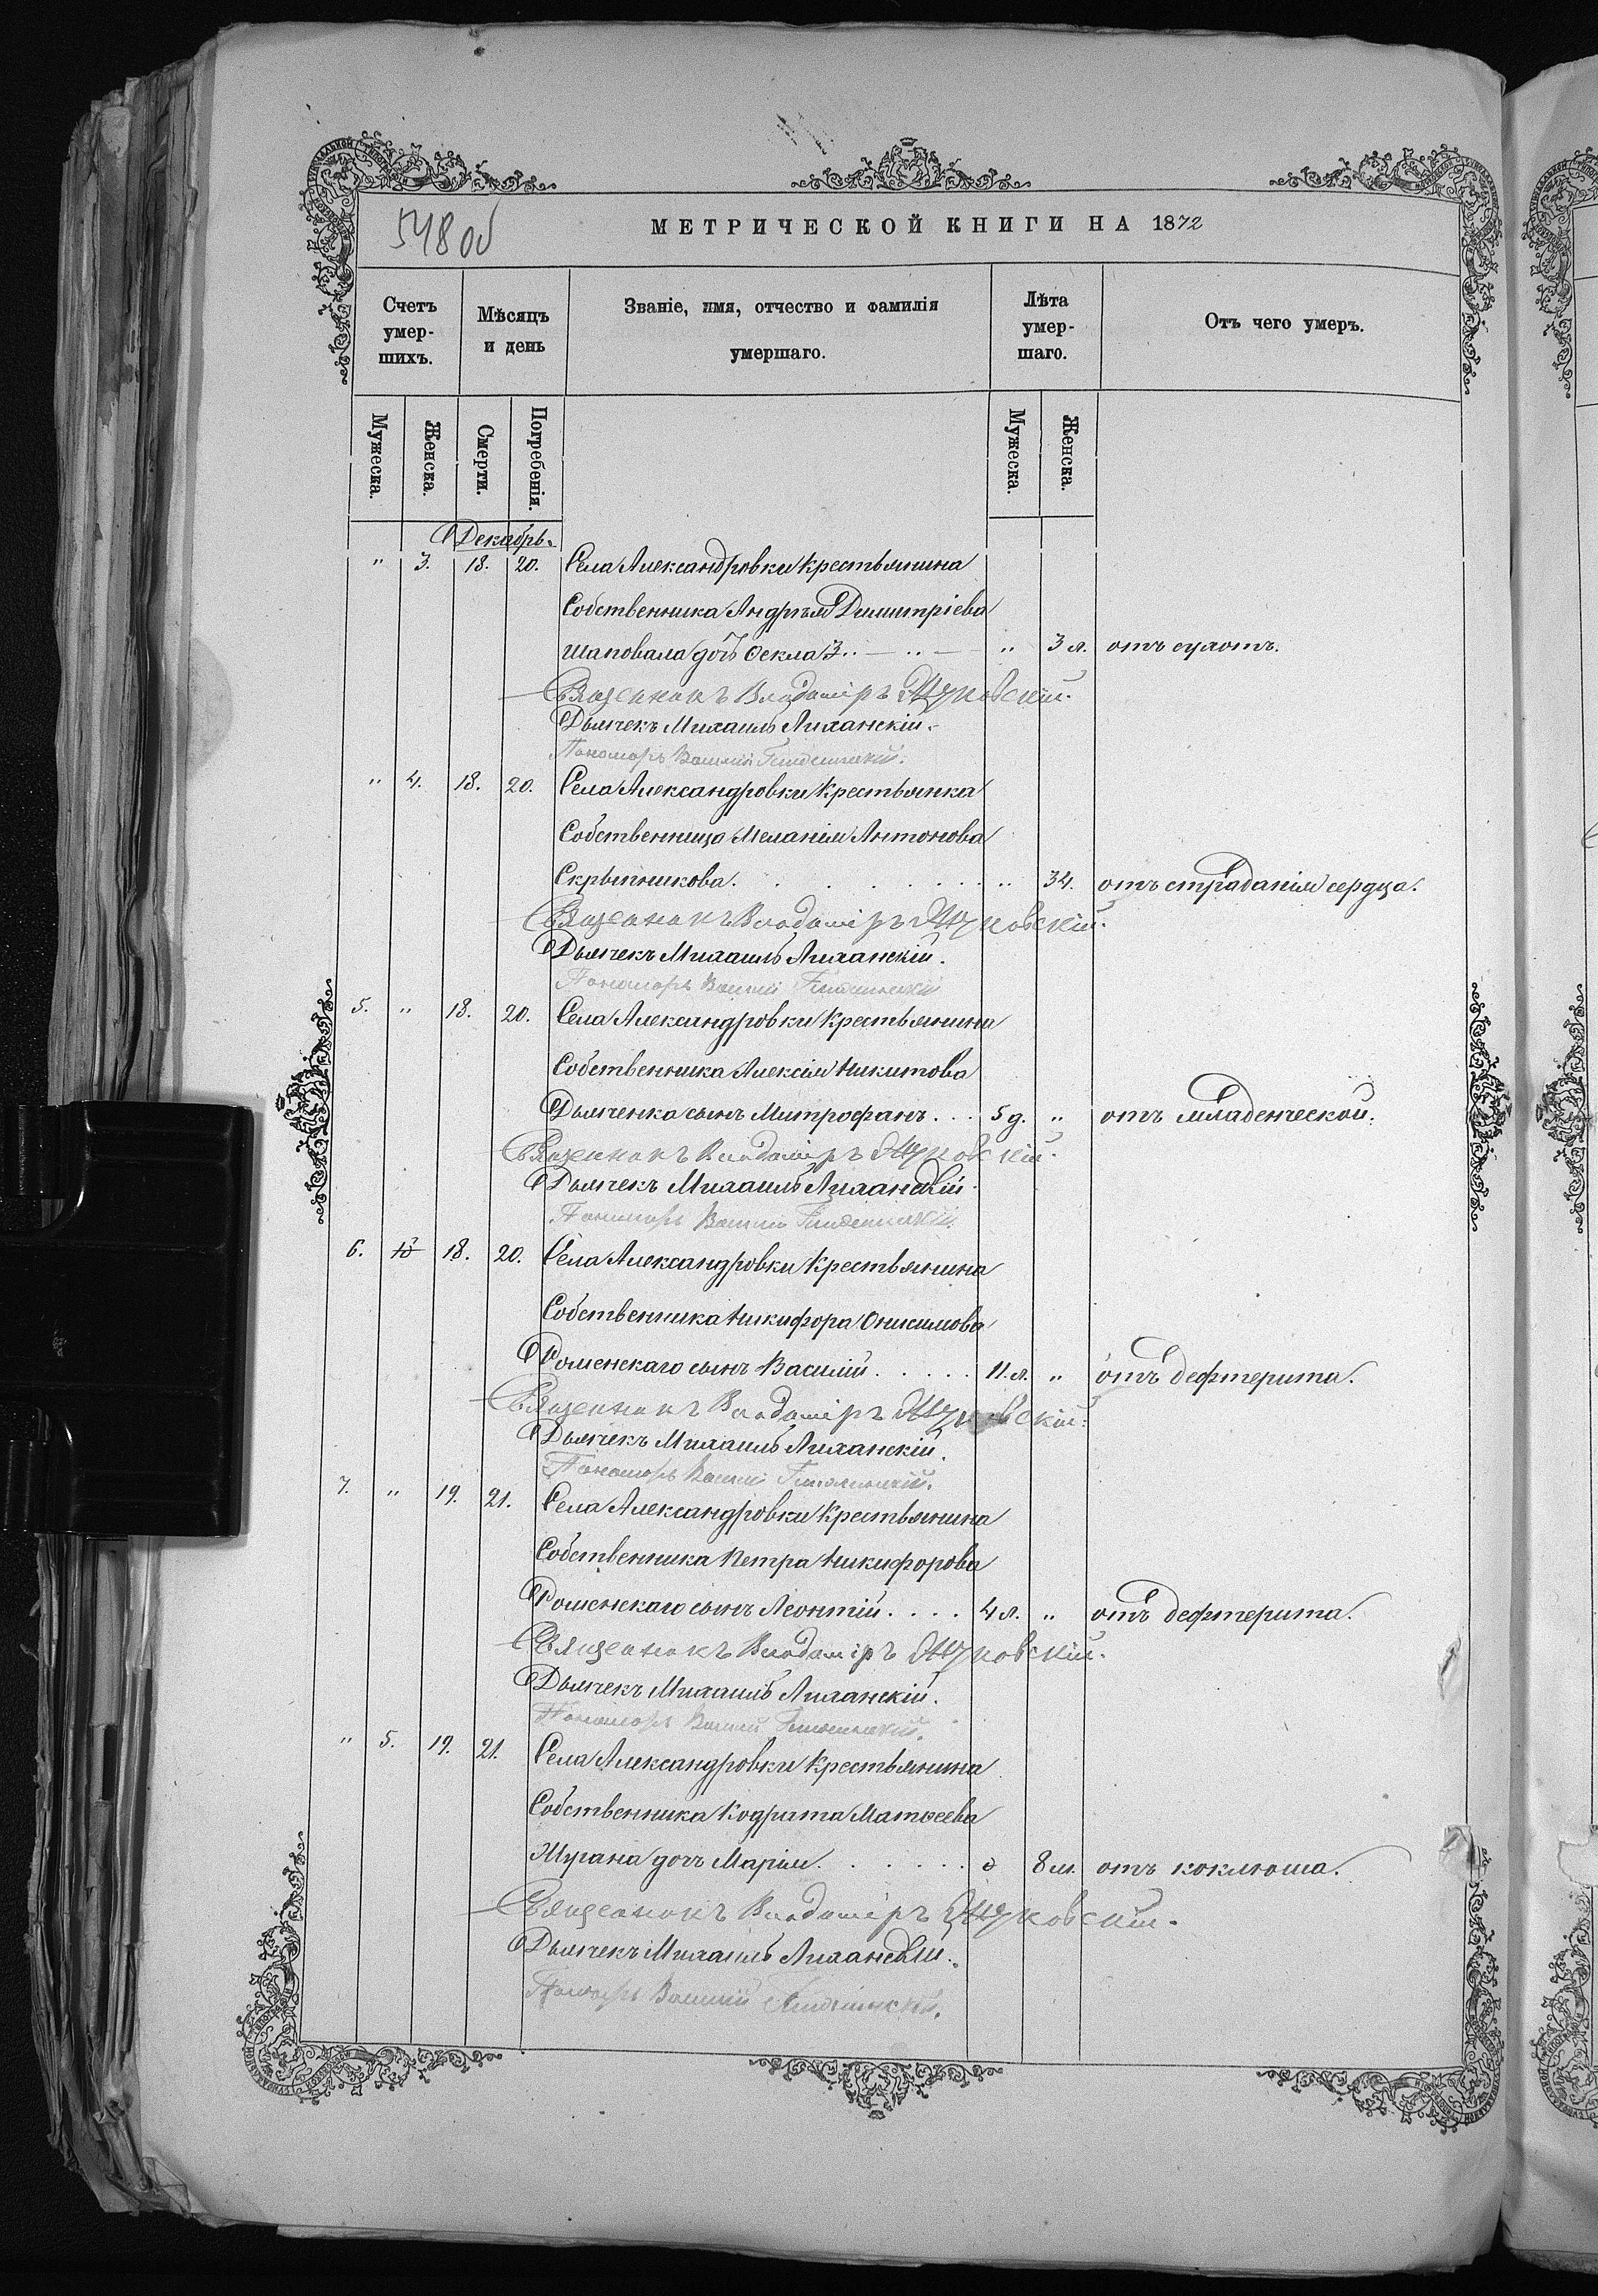 548 об
МЕТРИЧЕСКОЙ КНИГИ НА 1872
Счетъ умер-шихъ.
Мѣсяцъ и день
Званіе, имя, отчество и фамилія умершаго.
Лѣта умер-шаго.
Отъ чего умеръ.
Мужеска.
Женска.
Смерти.
Погребенія.
Мужеска.
Женска.
Декабрь.
" 3. 18. 20. Села Александровки крестьянина
Собственника Андрѣя Димитріева
Шаповала дочь Ѳекла " 3 л. отъ сухотъ.
Священикъ Владиміръ Жуковскій.
Дьячекъ Михаилъ Лиханскій.
Пономарь Василій
" 4. 18. 20. Села Александровки крестьянка
Собственница Меланія Антонова
Скрыпникова. " 34. отъ страданія сердца.
Священикъ Владиміръ Жуковскій.
Дьячекъ Михаилъ Лиханскій.
Пономарь Василій
5. " 18. 20. Села Александровки крестьянина
Собственника Алексія Никитова
Дьяченка сынъ Митрофанъ . . . 5 д. " отъ младенческой.
Священикъ Владиміръ Жуковскій.
Дьячекъ Михаилъ Лиханскій.
Пономарь Василій
6. 18. 20. Села Александровки крестьянина
Собственника Никифора Онисимова
Роменскаго сынъ Василій . . . . . 11. л. " отъ дефтерита.
Священикъ Владиміръ Жуковскій.
Дьячекъ Михаилъ Лиханскій.
Пономарь Василій
7. " 19. 21. Села Александровки крестьянина
Собственника Петра Никифорова
Роменскаго сынъ Леонтій . . . . 4 л. " отъ дефтерита.
Священикъ Владиміръ Жуковскій.
Дьячекъ Михаилъ Лиханскій.
Пономарь Василій
" 5. 19. 21. Села Александровки крестьянина
Собственника Кодрата Матѳеева
Журана дочь Марія . . . . . . 8 м. отъ коклюша.
Священикъ Владиміръ Жуковскій.
Дьячекъ Михаилъ Лиханскій.
Пономарь Василій